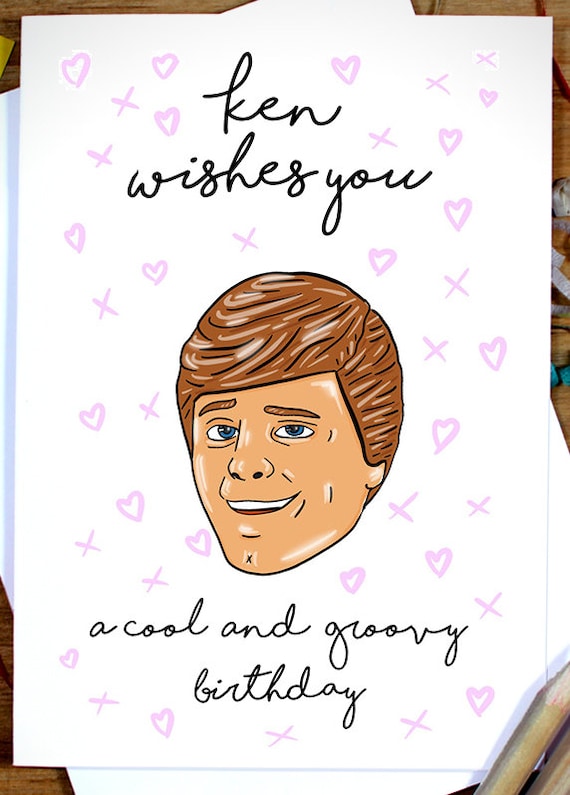 ken
wishes you
a cool and groovy
birthday